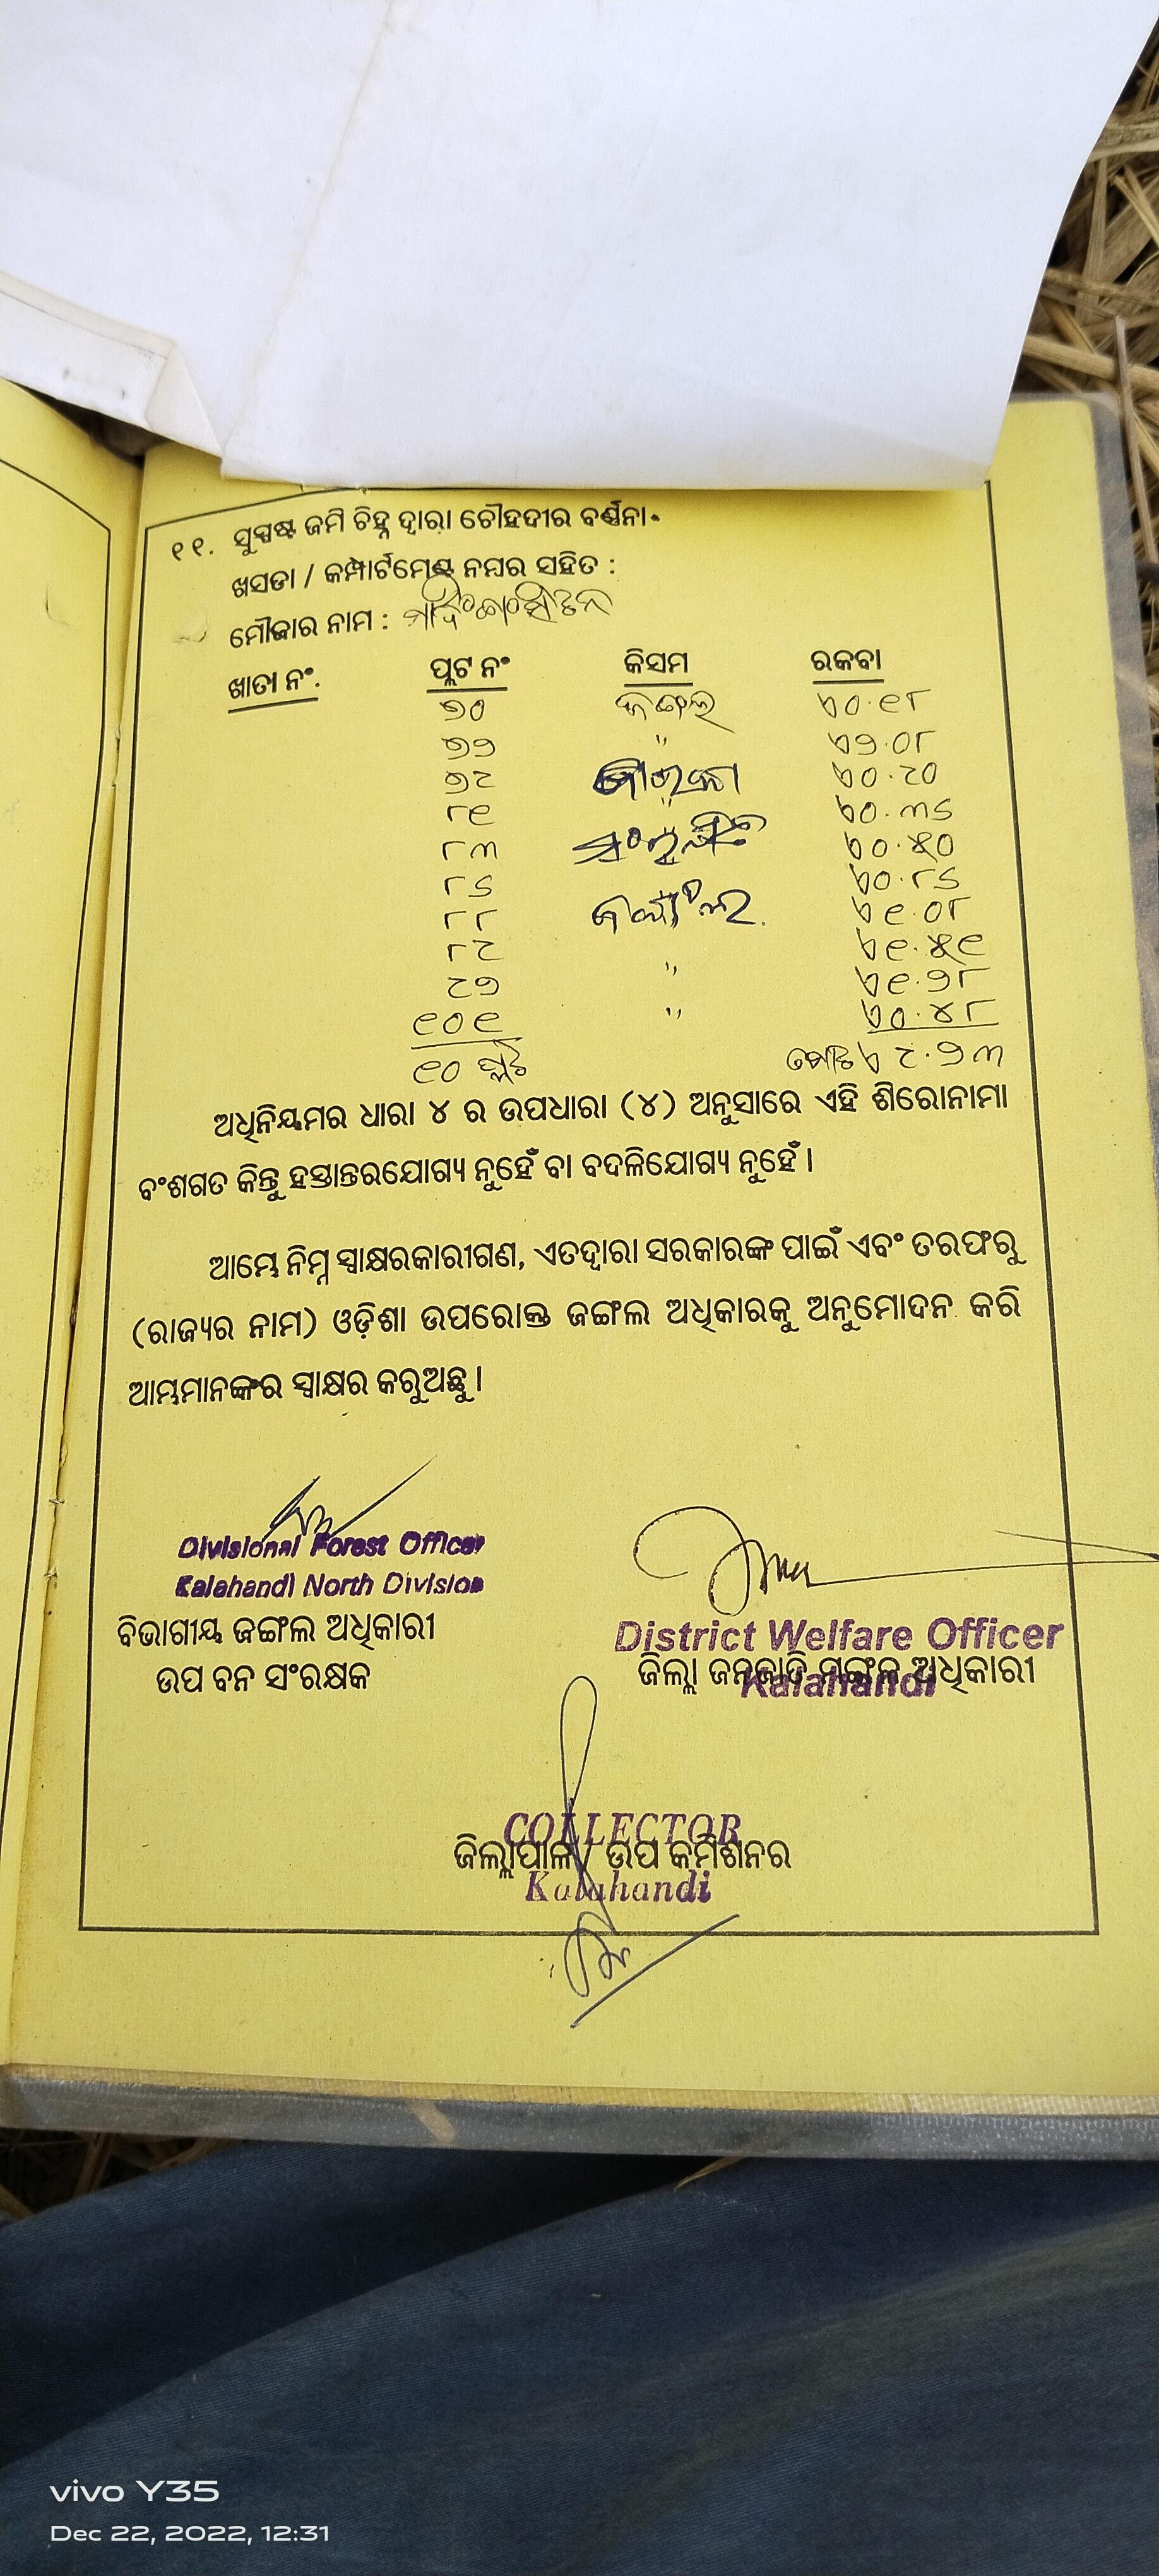 ୧୧. ସୁସ୍ପଷ୍ଟ ଜମି ଚିହ୍ନ ଦ୍ୱାରା ଚୌହଦୀର ବର୍ଣ୍ଣନା-
ଖସଡା / କମ୍ପାର୍ଟମେଣ୍ଟ ନମ୍ବର ସହିତ :
ମୌଜାର ନାମ :
ଖାତା ନଂ. ପ୍ଲଟ ନଂ କିସମ ରକବା
୭୦ ଜଙ୍ଗଲ ୦.୧୮
୭୨ " ୨.୦୮
୭୯ ୦.୯୦
୮୧ " ୦.୩୫
୮୩ ୦.୫୦
୮୫ ୦.୮୫
୮୮ ୧.୦୮
୮୯ ୧.୫୧
୯୭ " ୧.୨୮
୧୦୧ " ୦.୪୮
୧୦ ପ୍ଲଟ ମୋଟ ୯.୨୩
ଅଧିନିୟମର ଧାରା ୪ ର ଉପଧାରା (୪) ଅନୁସାରେ ଏହି ଶିରୋନାମା
ବଂଶଗତ କିନ୍ତୁ ହସ୍ତାନ୍ତରଯୋଗ୍ୟ ନୁହେଁ ବା ବଦଳିଯୋଗ୍ୟ ନୁହେଁ ।
ଆମ୍ଭେ ନିମ୍ନ ସ୍ୱାକ୍ଷରକାରୀଗଣ, ଏତଦ୍ୱାରା ସରକାରଙ୍କ ପାଇଁ ଏବଂ ତରଫରୁ
(ରାଜ୍ୟର ନାମ) ଓଡ଼ିଶା ଉପରୋକ୍ତ ଜଙ୍ଗଲ ଅଧିକାରକୁ ଅନୁମୋଦନ କରି
ଆମ୍ଭମାନଙ୍କର ସ୍ୱାକ୍ଷର କରୁଅଛୁ ।
Divisional Forest Officer
Kalahandi North Division
ବିଭାଗୀୟ ଜଙ୍ଗଲ ଅଧିକାରୀ
ଉପ ବନ ସଂରକ୍ଷକ
District Welfare Officer
ଜିଲ୍ଲା ଜନଜାତି ମଙ୍ଗଳ ଅଧିକାରୀ
Kalahandi
COLLECTOR
ଜିଲ୍ଲାପାଳ / ଉପ କମିଶନର
Kalahandi
vivo Y35
Dec 22, 2022, 12:31